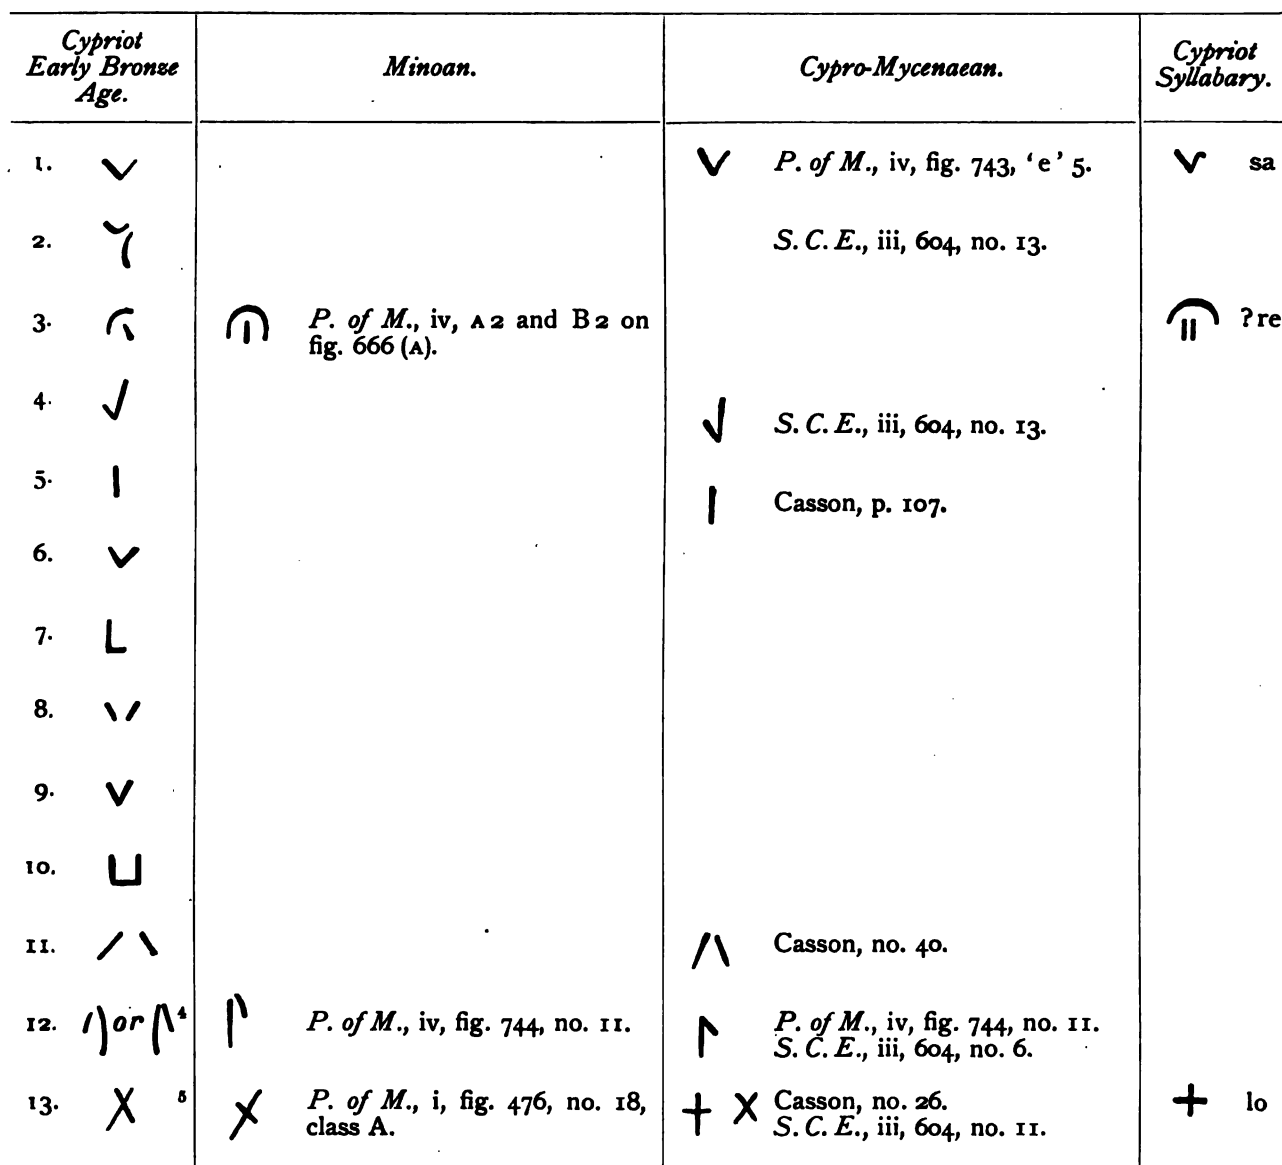 Cypriot Early Bronze Age. Minoan. Cypro-Mycenaean. Cypriot Syllabary.
1. P. of M., iv, fig. 743, ‘e’ 5. sa
2. S. C. E., iii, 604, no. 13.
3. P. of M., iv, A 2 and B 2 on fig. 666 (A). ? re
4. S. C. E., iii, 604, no. 13.
5. Casson, p. 107.
6.
7.
8.
9.
10.
11. Casson, no. 40.
12. or 4 P. of M., iv, fig. 744, no. 11. P. of M., iv, fig. 744, no. 11.
S. C. E., iii, 604, no. 6.
13. 5 P. of M., i, fig. 476, no. 18, class A. Casson, no. 26.
S. C. E., iii, 604, no. 11. lo